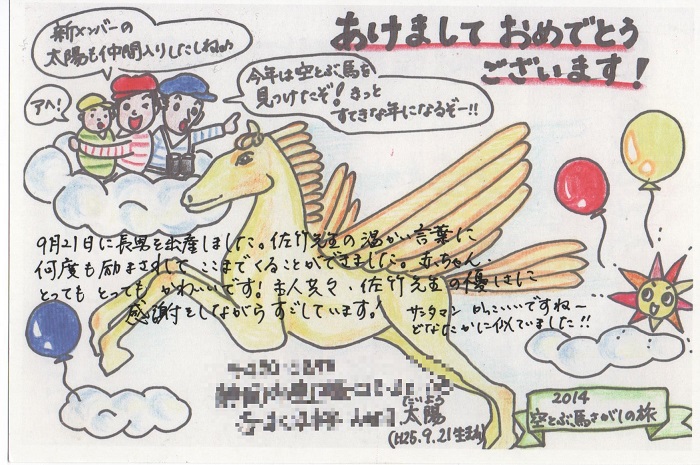 あけまして おめでとう
ございます！
新メンバーの
太陽も仲間入りしたしね。
アヘ！
今年は空とぶ馬を
見つけたぞ！きっと
すてきな年になるぞー!!
9月21日に長男を出産しました。佐竹先生の温かい言葉に
何度も励まされて ここまでくることができました。赤ちゃん、
とっても とっても かわいいです！主人共々、佐竹先生の優しさに
感謝をしながらすごしています。
サンタマン かっこいいですね〜
どなたかに似ていました!!
たいよう
太陽
(H25.9.21生まれ)
2014
空とぶ馬さがしの旅